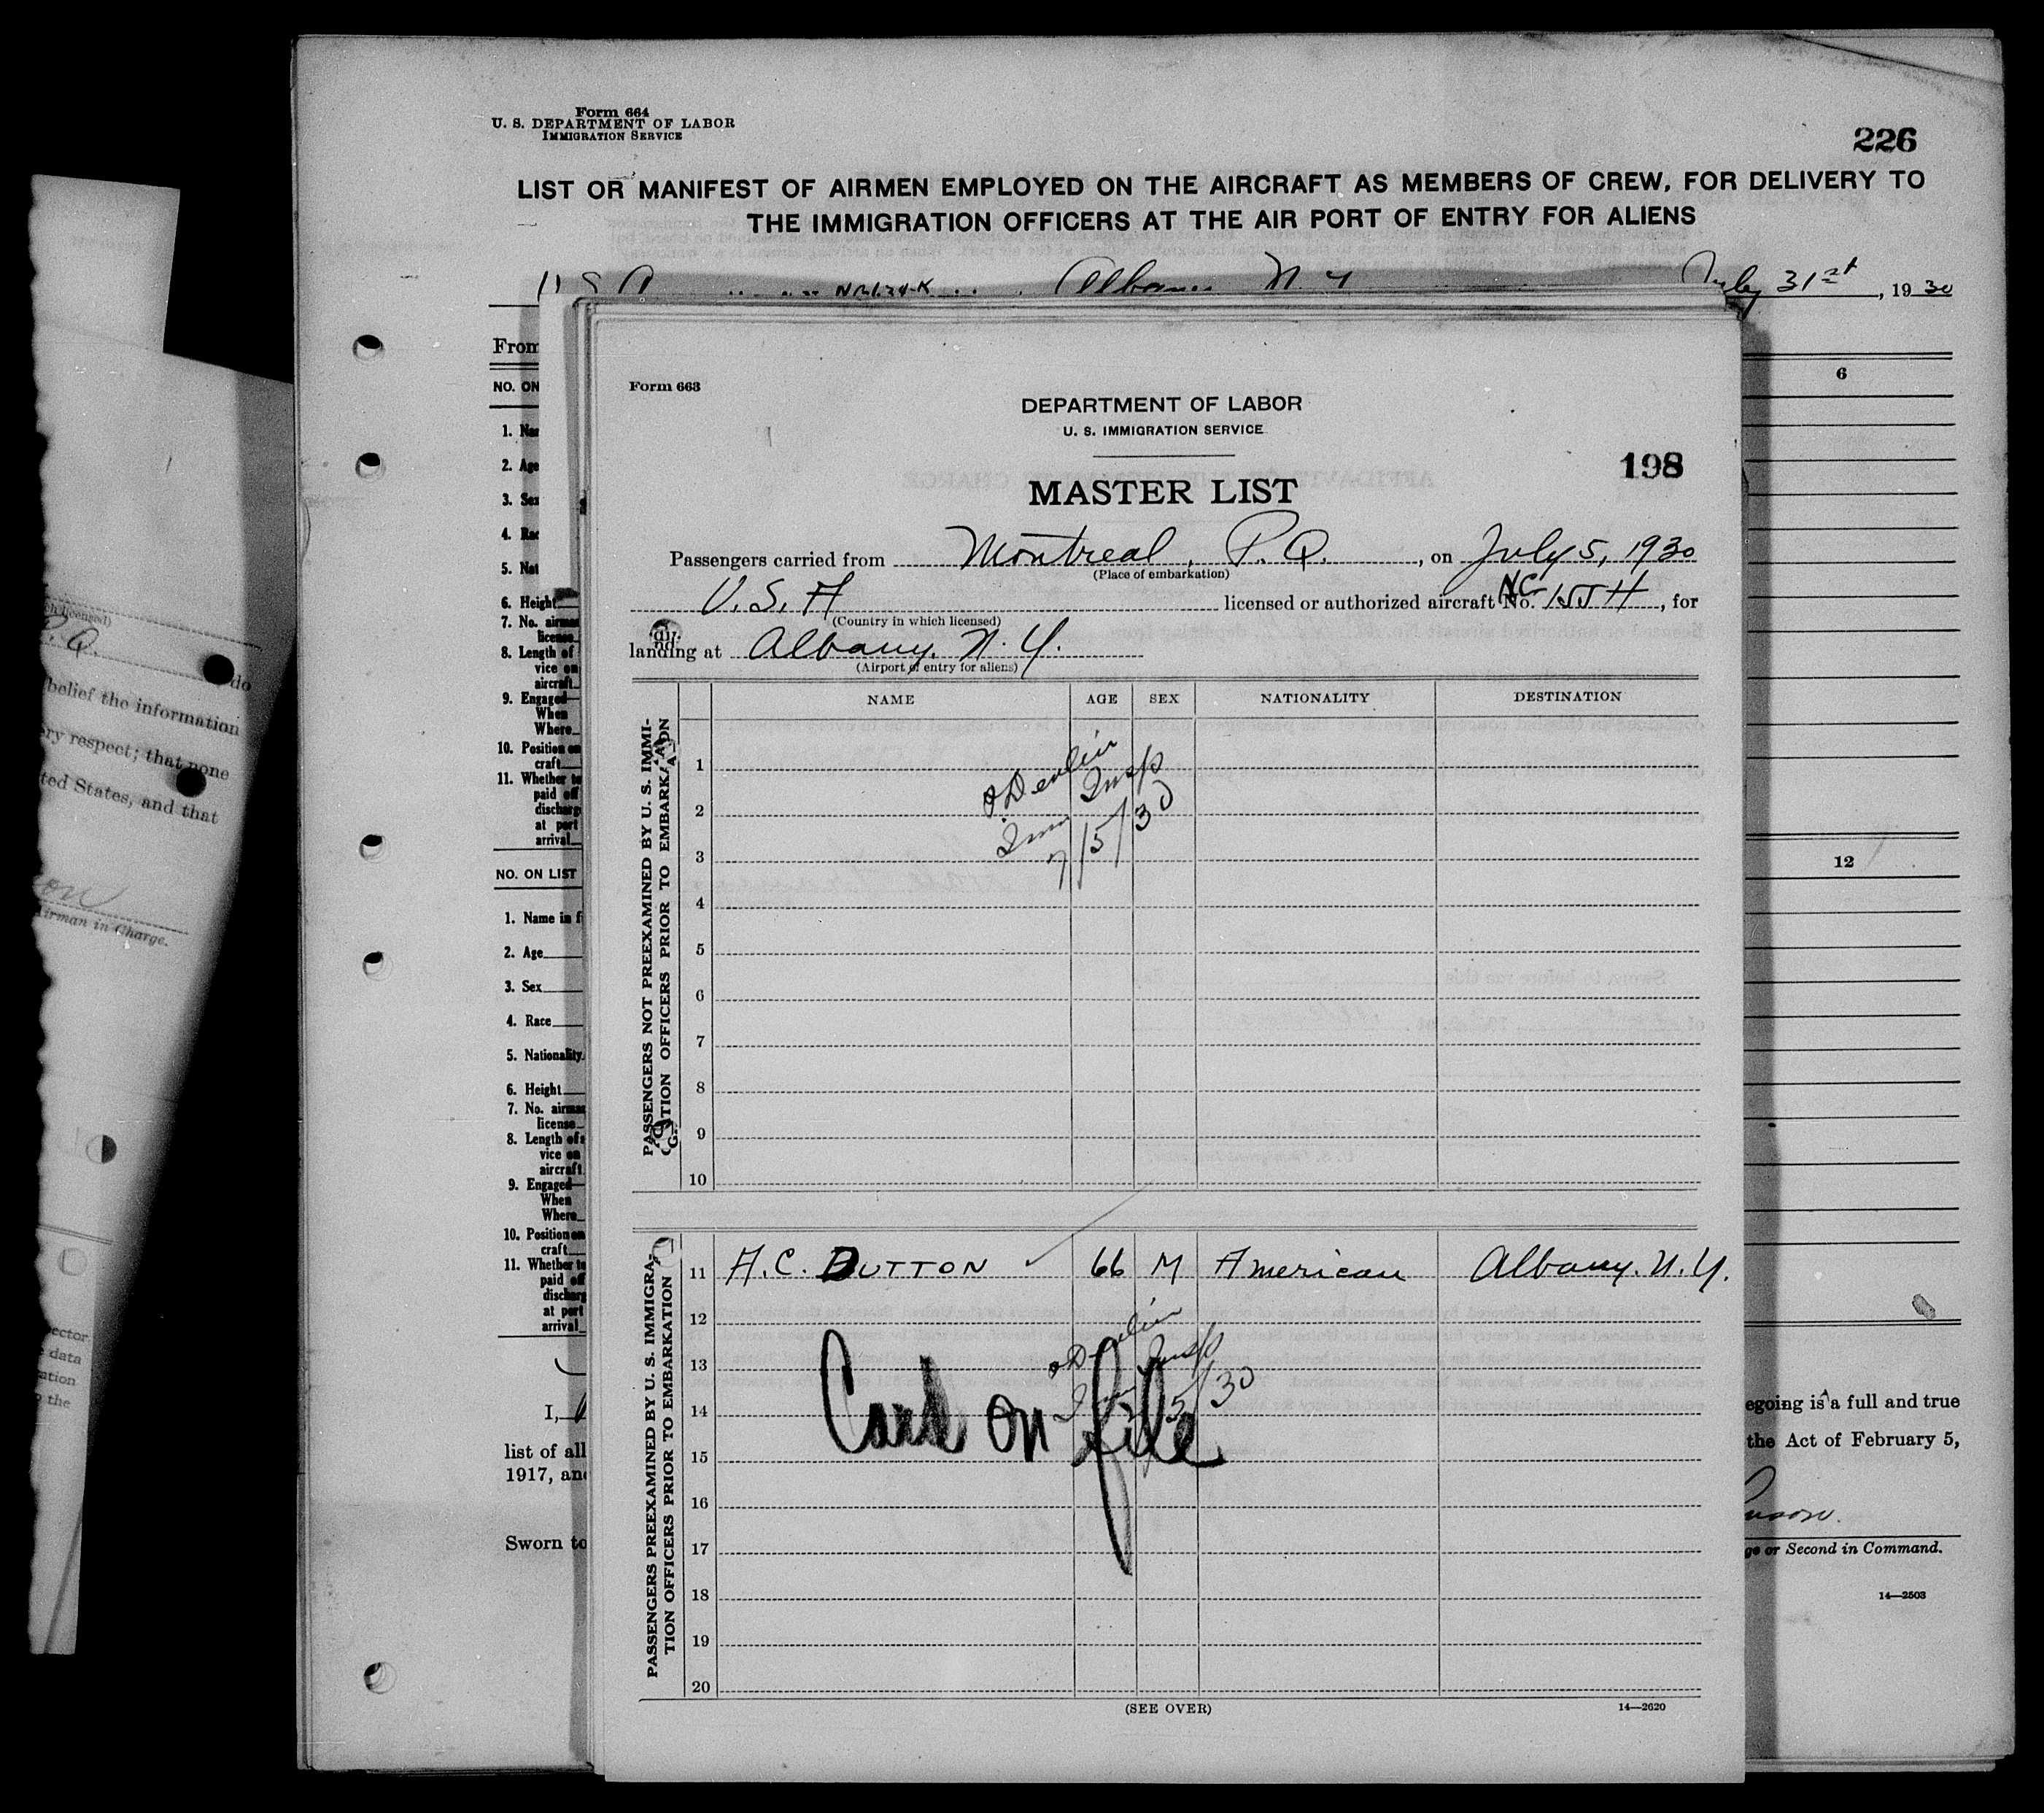 Form 664
U. S. DEPARTMENT OF LABOR
IMMIGRATION SERVICE
226
LIST OR MANIFEST OF AIRMEN EMPLOYED ON THE AIRCRAFT AS MEMBERS OF CREW, FOR DELIVERY TO
THE IMMIGRATION OFFICERS AT THE AIR PORT OF ENTRY FOR ALIENS
Albany N Y July 31st, 1930
From
NO. ON
6
1. Nam
2. Age
3. Sex
4. Rac
5. Nat
6. Height
7. No. airman
license
8. Length of
vice on
aircraft
9. Engaged
When
Where
10. Position on
craft
11. Whether to
paid off
discharg
at port
arrival
NO. ON LIST
12
1. Name in f
2. Age
3. Sex
4. Race
5. Nationality
6. Height
7. No. airman
license
8. Length of s
vice on
aircraft
9. Engaged
When
Where
10. Position on
craft
11. Whether to
paid off
discharg
at port
arrival
I,
list of all
1917, and
Sworn to
egoing is a full and true
the Act of February 5,
ge or Second in Command.
14—2503
P. Q.
do
belief the information
ery respect; that none
ted States, and that
Airman in Charge.
ector
data
ation
o the
Form 663
DEPARTMENT OF LABOR
U. S. IMMIGRATION SERVICE
198
MASTER LIST
Passengers carried from Montreal, P. Q., on July 5, 1930
(Place of embarkation)
U. S. A licensed or authorized aircraft No. NC 155 H, for
(Country in which licensed)
landing at Albany, N. Y.
(Airport of entry for aliens)
NAME AGE SEX NATIONALITY DESTINATION
PASSENGERS NOT PREEXAMINED BY U. S. IMMI-
GRATION OFFICERS PRIOR TO EMBARKATION
1
2
3
4
5
6
7
8
9
10
Imm Insp
7/5/30
PASSENGERS PREEXAMINED BY U. S. IMMIGRA-
TION OFFICERS PRIOR TO EMBARKATION
11 A. C. DUTTON 66 M American Albany, N. Y.
12
13
14
15
16
17
18
19
20
Insp
5/30
Card on file
(SEE OVER)
14—2620